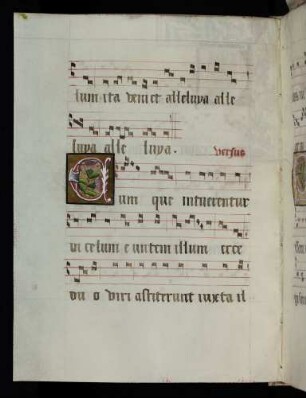 lum ita veniet alleluya alle
luya alle luya. versus
Cum que intuerentur
in celum euntem illum ecce
du o viri astiterunt iuxta il